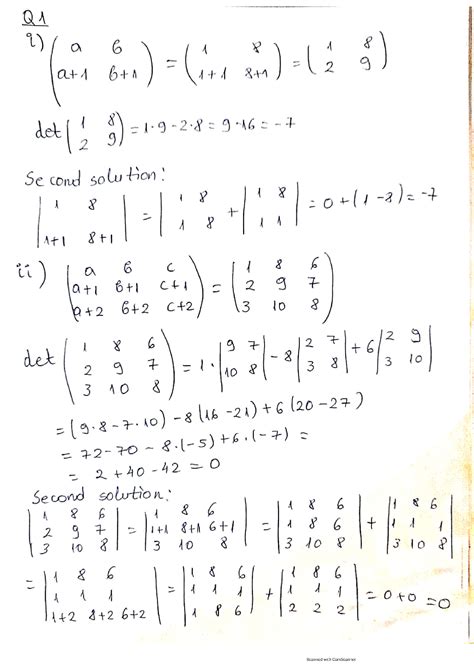 Q1
i) ( a b ; a+1 b+1 ) = ( 1 8 ; 1+1 8+1 ) = ( 1 8 ; 2 9 )
det ( 1 8 ; 2 9 ) = 1·9 - 2·8 = 9·16 = -7
Second solution:
| 1 8 ; 1+1 8+1 | = | 1 8 ; 1 8 | + | 1 8 ; 1 1 | = 0 + (1-8) = -7
ii) ( a b c ; a+1 b+1 c+1 ; a+2 b+2 c+2 ) = ( 1 8 6 ; 2 9 7 ; 3 10 8 )
det ( 1 8 6 ; 2 9 7 ; 3 10 8 ) = 1· | 9 7 ; 10 8 | - 8 | 2 7 ; 3 8 | + 6 | 2 9 ; 3 10 |
= (9·8 - 7·10) - 8(16 - 21) + 6(20 - 27)
= 72 - 70 - 8·(-5) + 6·(-7) =
= 2 + 40 - 42 = 0
Second solution:
| 1 8 6 ; 2 9 7 ; 3 10 8 | = | 1 8 6 ; 1+1 8+1 6+1 ; 3 10 8 | = | 1 8 6 ; 1 8 6 ; 3 10 8 | + | 1 8 6 ; 1 1 1 ; 3 10 8 |
= | 1 8 6 ; 1 1 1 ; 1+2 8+2 6+2 | = | 1 8 6 ; 1 1 1 ; 1 8 6 | + | 1 8 6 ; 1 1 1 ; 2 2 2 | = 0 + 0 = 0
Scanned with CamScanner